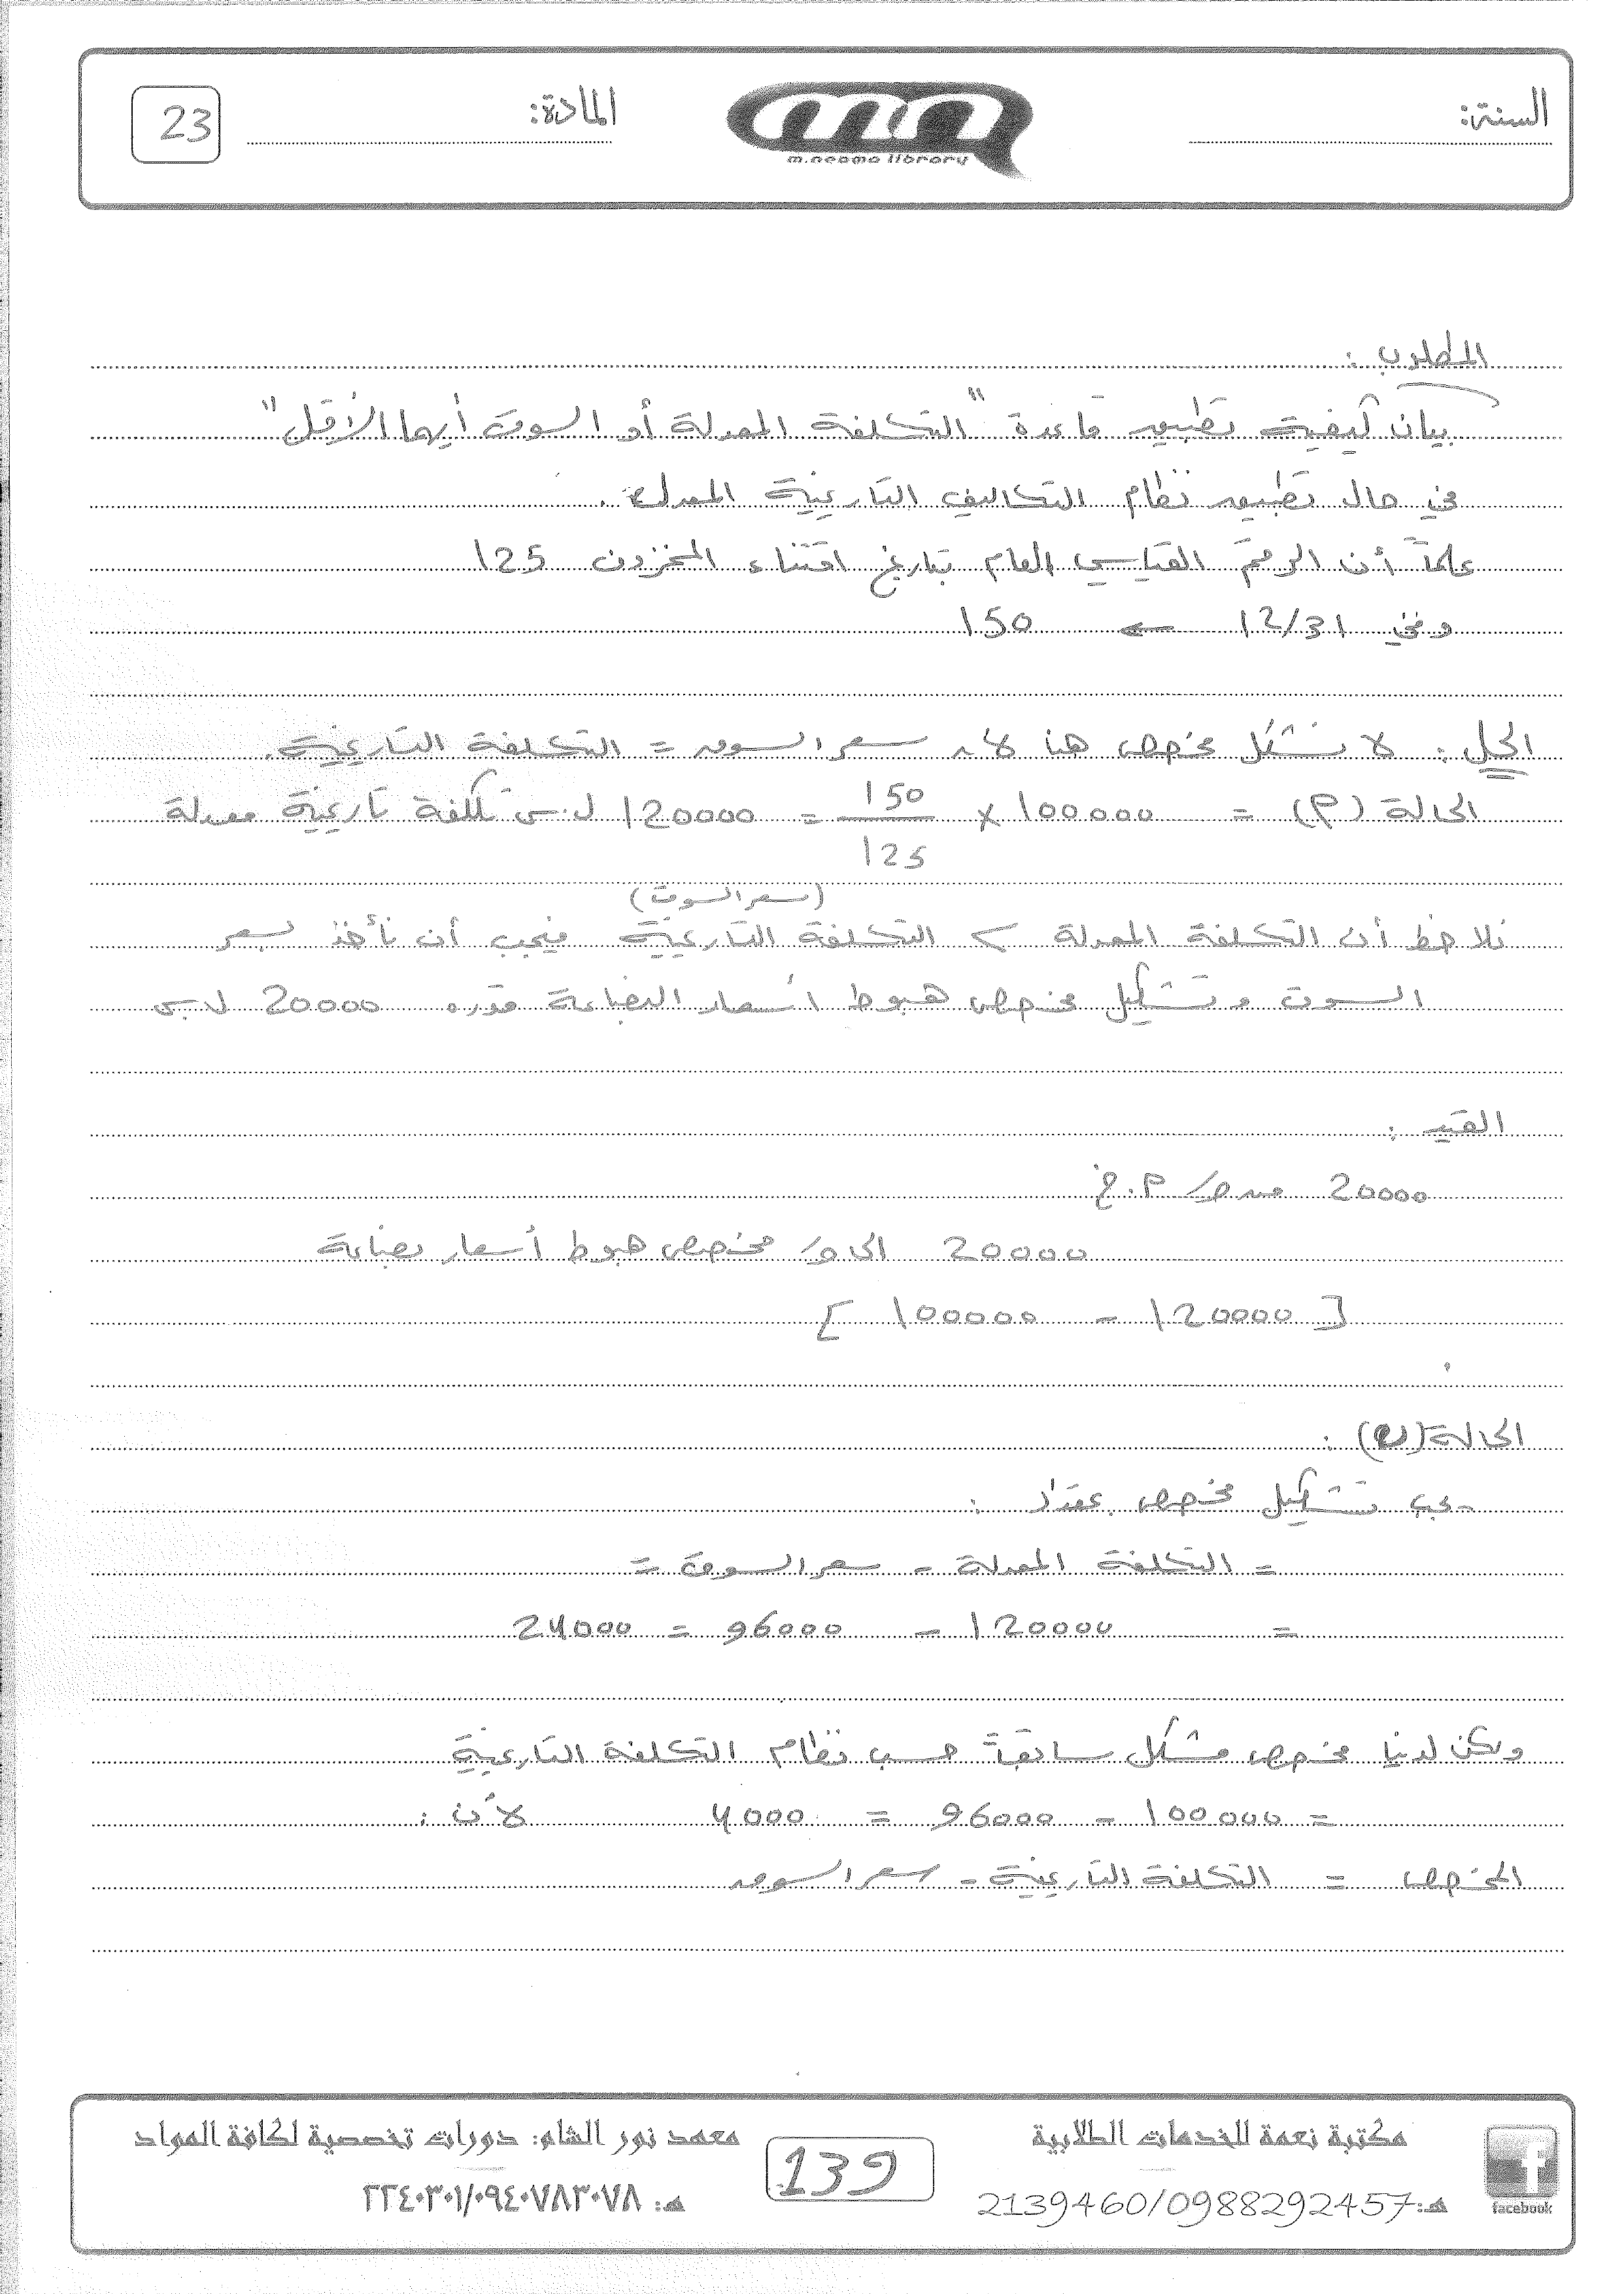 السنة:
mn
m.neama library
المادة:
23
المطلوب :
بيان كيفية تطبيق قاعدة "التكلفة المعدلة أو السوق أيهما الأقل"
في حال تطبيق نظام التكاليف التاريخية المعدلة .
علماً أن الرقم القياسي العام بتاريخ اقتناء المخزون 125
وفي 12/31 ← 150
الحل : لا نشكل مخصص هنا لأن سعر السوق = التكلفة التاريخية.
الحالة (م) = 100000 × 150/125 = 120000 ل.س تكلفة تاريخية معدلة
(سعر السوق)
نلاحظ أن التكلفة المعدلة > التكلفة التاريخية فيجب أن نأخذ بسعر
السوق وتشكيل مخصص هبوط أسعار البضاعة قدره 20000 ل.س
القيد :
20000 من ح/ م.خ
20000 الى ح/ مخصص هبوط أسعار بضاعة
[ 120000 - 100000 ]
الحالة (ن) :
يجب تشكيل مخصص بمقدار :
= التكلفة المعدلة - سعر السوق =
= 120000 - 96000 = 24000
ولكن لدينا مخصص مشكل سابقاً حسب نظام التكلفة التاريخية
= 100000 - 96000 = 4000 لأن :
المخصص = التكلفة التاريخية - سعر السوق
facebook
مكتبة نعمة للخدمات الطلابية
هـ: 2139460/0988292457
139
معهد نور الشام: دورات تخصصية لكافة المواد
هـ: ٢٢٤٠٣٠١/٠٩٤٠٧٨٣٠٧٨